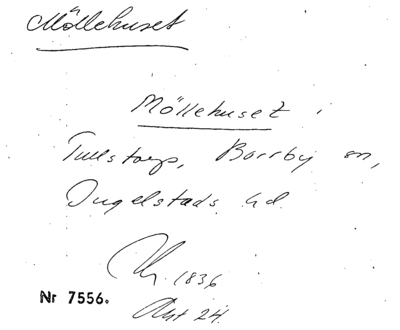 Möllehuset
Möllehuset i
Tullstorp, Borrby sn,
Ingelstads hd.
1836
Nr 7556.
24.